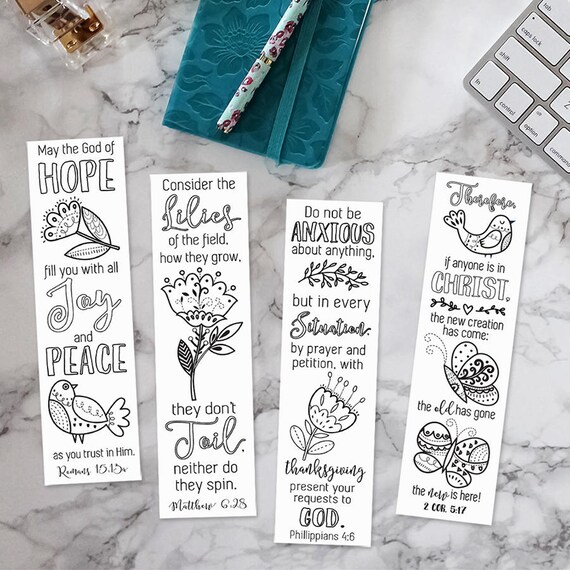 May the God of
HOPE
fill you with all
Joy
and
PEACE
as you trust in Him.
Romans 15:15v
Consider the
Lilies
of the field,
how they grow,
they don't
Toil,
neither do
they spin.
Matthew 6:28
Do not be
ANXIOUS
about anything,
but in every
Situation,
by prayer and
petition, with
thanksgiving
present your
requests to
GOD.
Phillippians 4:6
Therefore,
if anyone is in
CHRIST,
the new creation
has come:
the old has gone
the new is here!
2 COR. 5:17
tab
caps lock
shift
fn
control
option
command